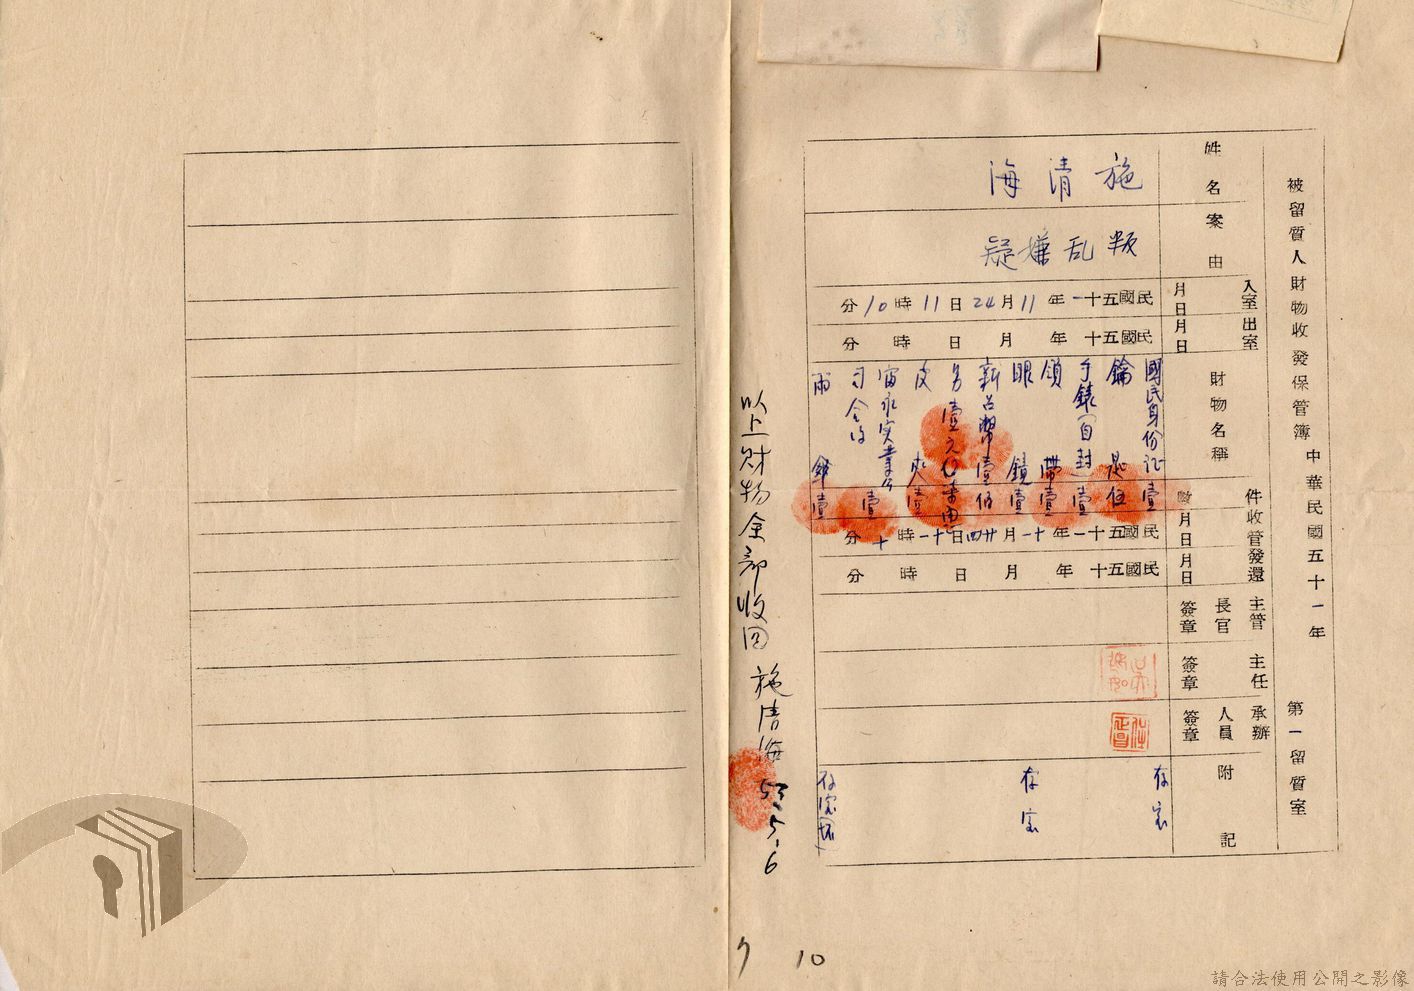 被留質人財物收發保管簿 中華民國五十一年 第一留質室
姓名
施清海
案由
叛乱嫌疑
入室
月日
民國五十一年11月24日11時10分
出室
月日
民國五十年月日時分
財物名稱
件數
國民身份证壹
鑰匙伍
手錶(自封)壹
領帶壹
眼鏡壹
新台幣壹佰
另壹元
皮夾壹
雨傘壹
收管
月日
民國五十一年十一月廿四日十一時十分
發還
月日
民國五十年月日時分
主管長官簽章
主任簽章
承辦人員簽章
附記
存室
存室
以上財物全部收回 施清海 53.5.6
10
請合法使用公開之影像